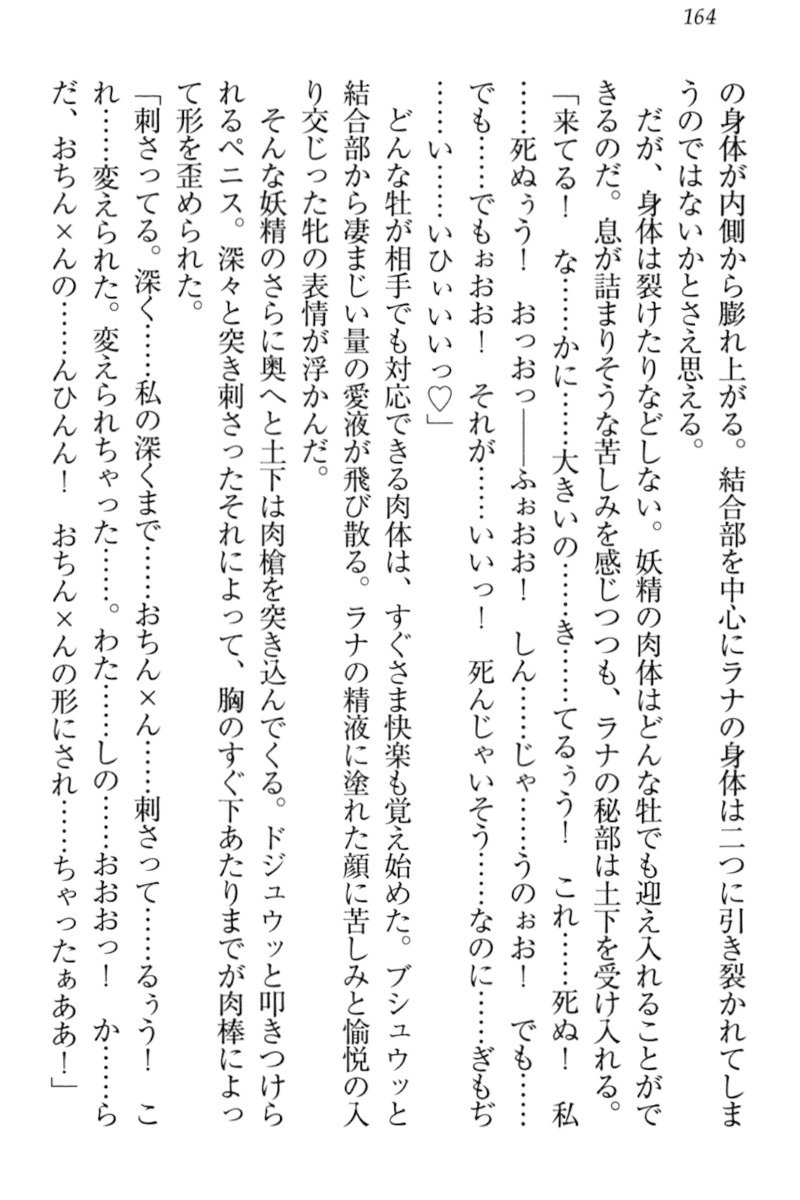 164
の身体が内側から膨れ上がる。結合部を中心にラナの身体は二つに引き裂かれてしま
うのではないかとさえ思える。
　だが、身体は裂けたりなどしない。妖精の肉体はどんな牡でも迎え入れることがで
きるのだ。息が詰まりそうな苦しみを感じつつも、ラナの秘部は土下を受け入れる。
「来てる！　な……かに……大きいの……き……てるぅう！　これ……死ぬ！　私
……死ぬぅう！　おっおっ――ふぉおお！　しん……じゃ……うのぉお！　でも……
でも……でもぉおお！　それが……いいっ！　死んじゃいそう……なのに……ぎもぢ
……い……いひぃいいっ♡」
　どんな牡が相手でも対応できる肉体は、すぐさま快楽も覚え始めた。ブシュウッと
結合部から凄まじい量の愛液が飛び散る。ラナの精液に塗れた顔に苦しみと愉悦の入
り交じった牝の表情が浮かんだ。
　そんな妖精のさらに奥へと土下は肉槍を突き込んでくる。ドジュウッと叩きつけら
れるペニス。深々と突き刺さったそれによって、胸のすぐ下あたりまでが肉棒によっ
て形を歪められた。
「刺さってる。深く……私の深くまで……おちん×ん……刺さって……るぅう！　こ
れ……変えられた。変えられちゃった……。わた……しの……おおおっ！　か……ら
だ、おちん×んの……んひんん！　おちん×んの形にされ……ちゃったぁああ！」